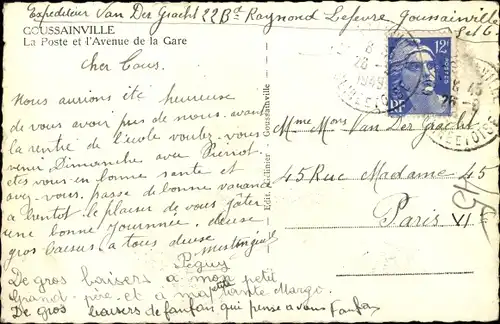 Expediteur Van Der Gracht 22 Bd Raynond Lefevre Goussainville
Set O
GOUSSAINVILLE
La Poste et l'Avenue de la Gare
Cher Tous.
Nous aurions été heureuse
de vous avoir près de nous. avant
la rentré de l'école voulez-vous
venir Dimanche avec Pierrot
etes vous en bonne santé et
avez-vous passe de bonne vacance
a Bientot le plaisir de vous
une bonne Journnée. deuse
gros baiser a tous deuse
Peguy
De gros baisers a mon petit
Grand-père et a ma petite tante Margo.
De gros baisers de fanfan qui pense a vous Fanfan
Edit. Radinier - Goussainville
12F
POSTES
RF
8 45
26 - 9
1949
SEINE ET OISE
Mme Mons Van Der Gracht
45 Rue Madame 45
Paris VI